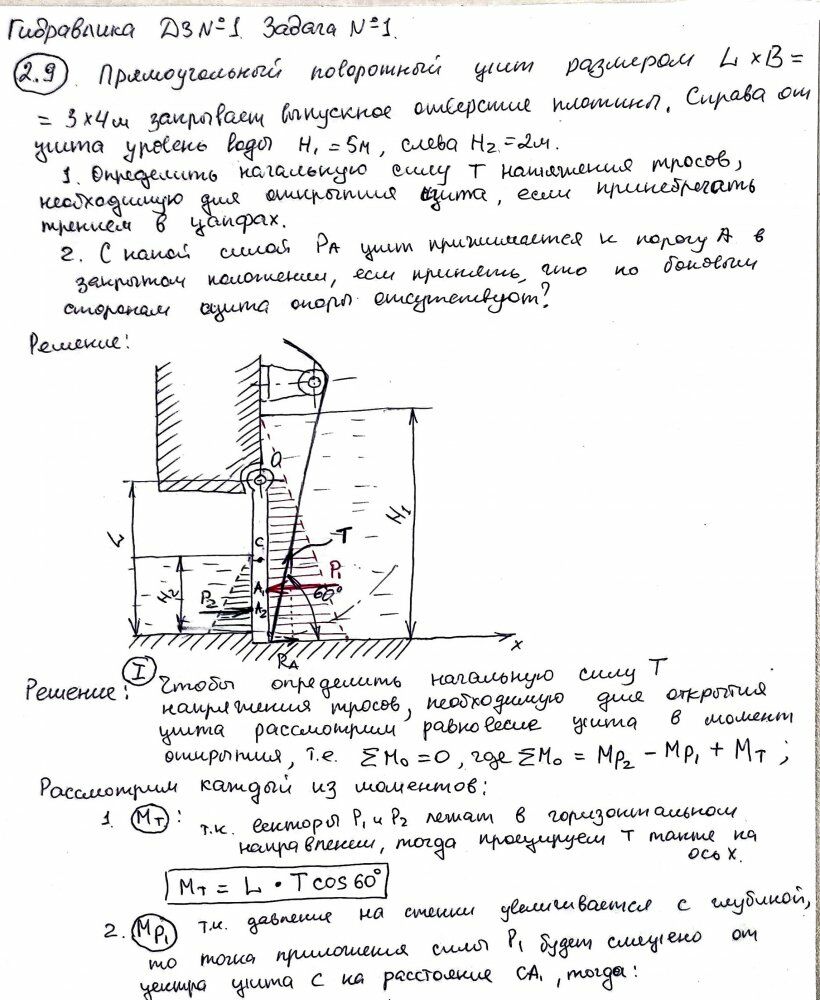 Гидравлика ДЗ №1. Задача №1.
2.9. Прямоугольный поворотный щит размером L × B =
= 3×4м закрывает выпускное отверстие плотины. Справа от
щита уровень воды H₁ = 5м, слева H₂ = 2м.
1. Определить начальную силу T натяжения тросов,
необходимую для открытия щита, если принебрегать
трением в цапфах.
2. С какой силой PA щит прижимается к порогу A в
закрытом положении, если принять, что по боковым
сторонам щита опоры отсутствуют?
Решение:
O
H₁
L
C
T
P₁
H₂
A₁
60°
P₂
A₂
x
RA
Решение: I Чтобы определить начальную силу T
напряжения тросов, необходимую для открытия
щита рассмотрим равновесие щита в момент
открытия, т.е. ΣM₀ = 0, где ΣM₀ = Mp₂ − Mp₁ + MT ;
Рассмотрим каждый из моментов:
1. MT : т.к. векторы P₁ и P₂ лежат в горизонтальном
направлении, тогда проецируем T также на
ось X.
MT = L • T cos 60°
2. Mp₁ т.к. давление на стенки увеличивается с глубиной,
то точка приложения силы P₁ будет смещено от
центра щита C на расстояние CA₁, тогда: